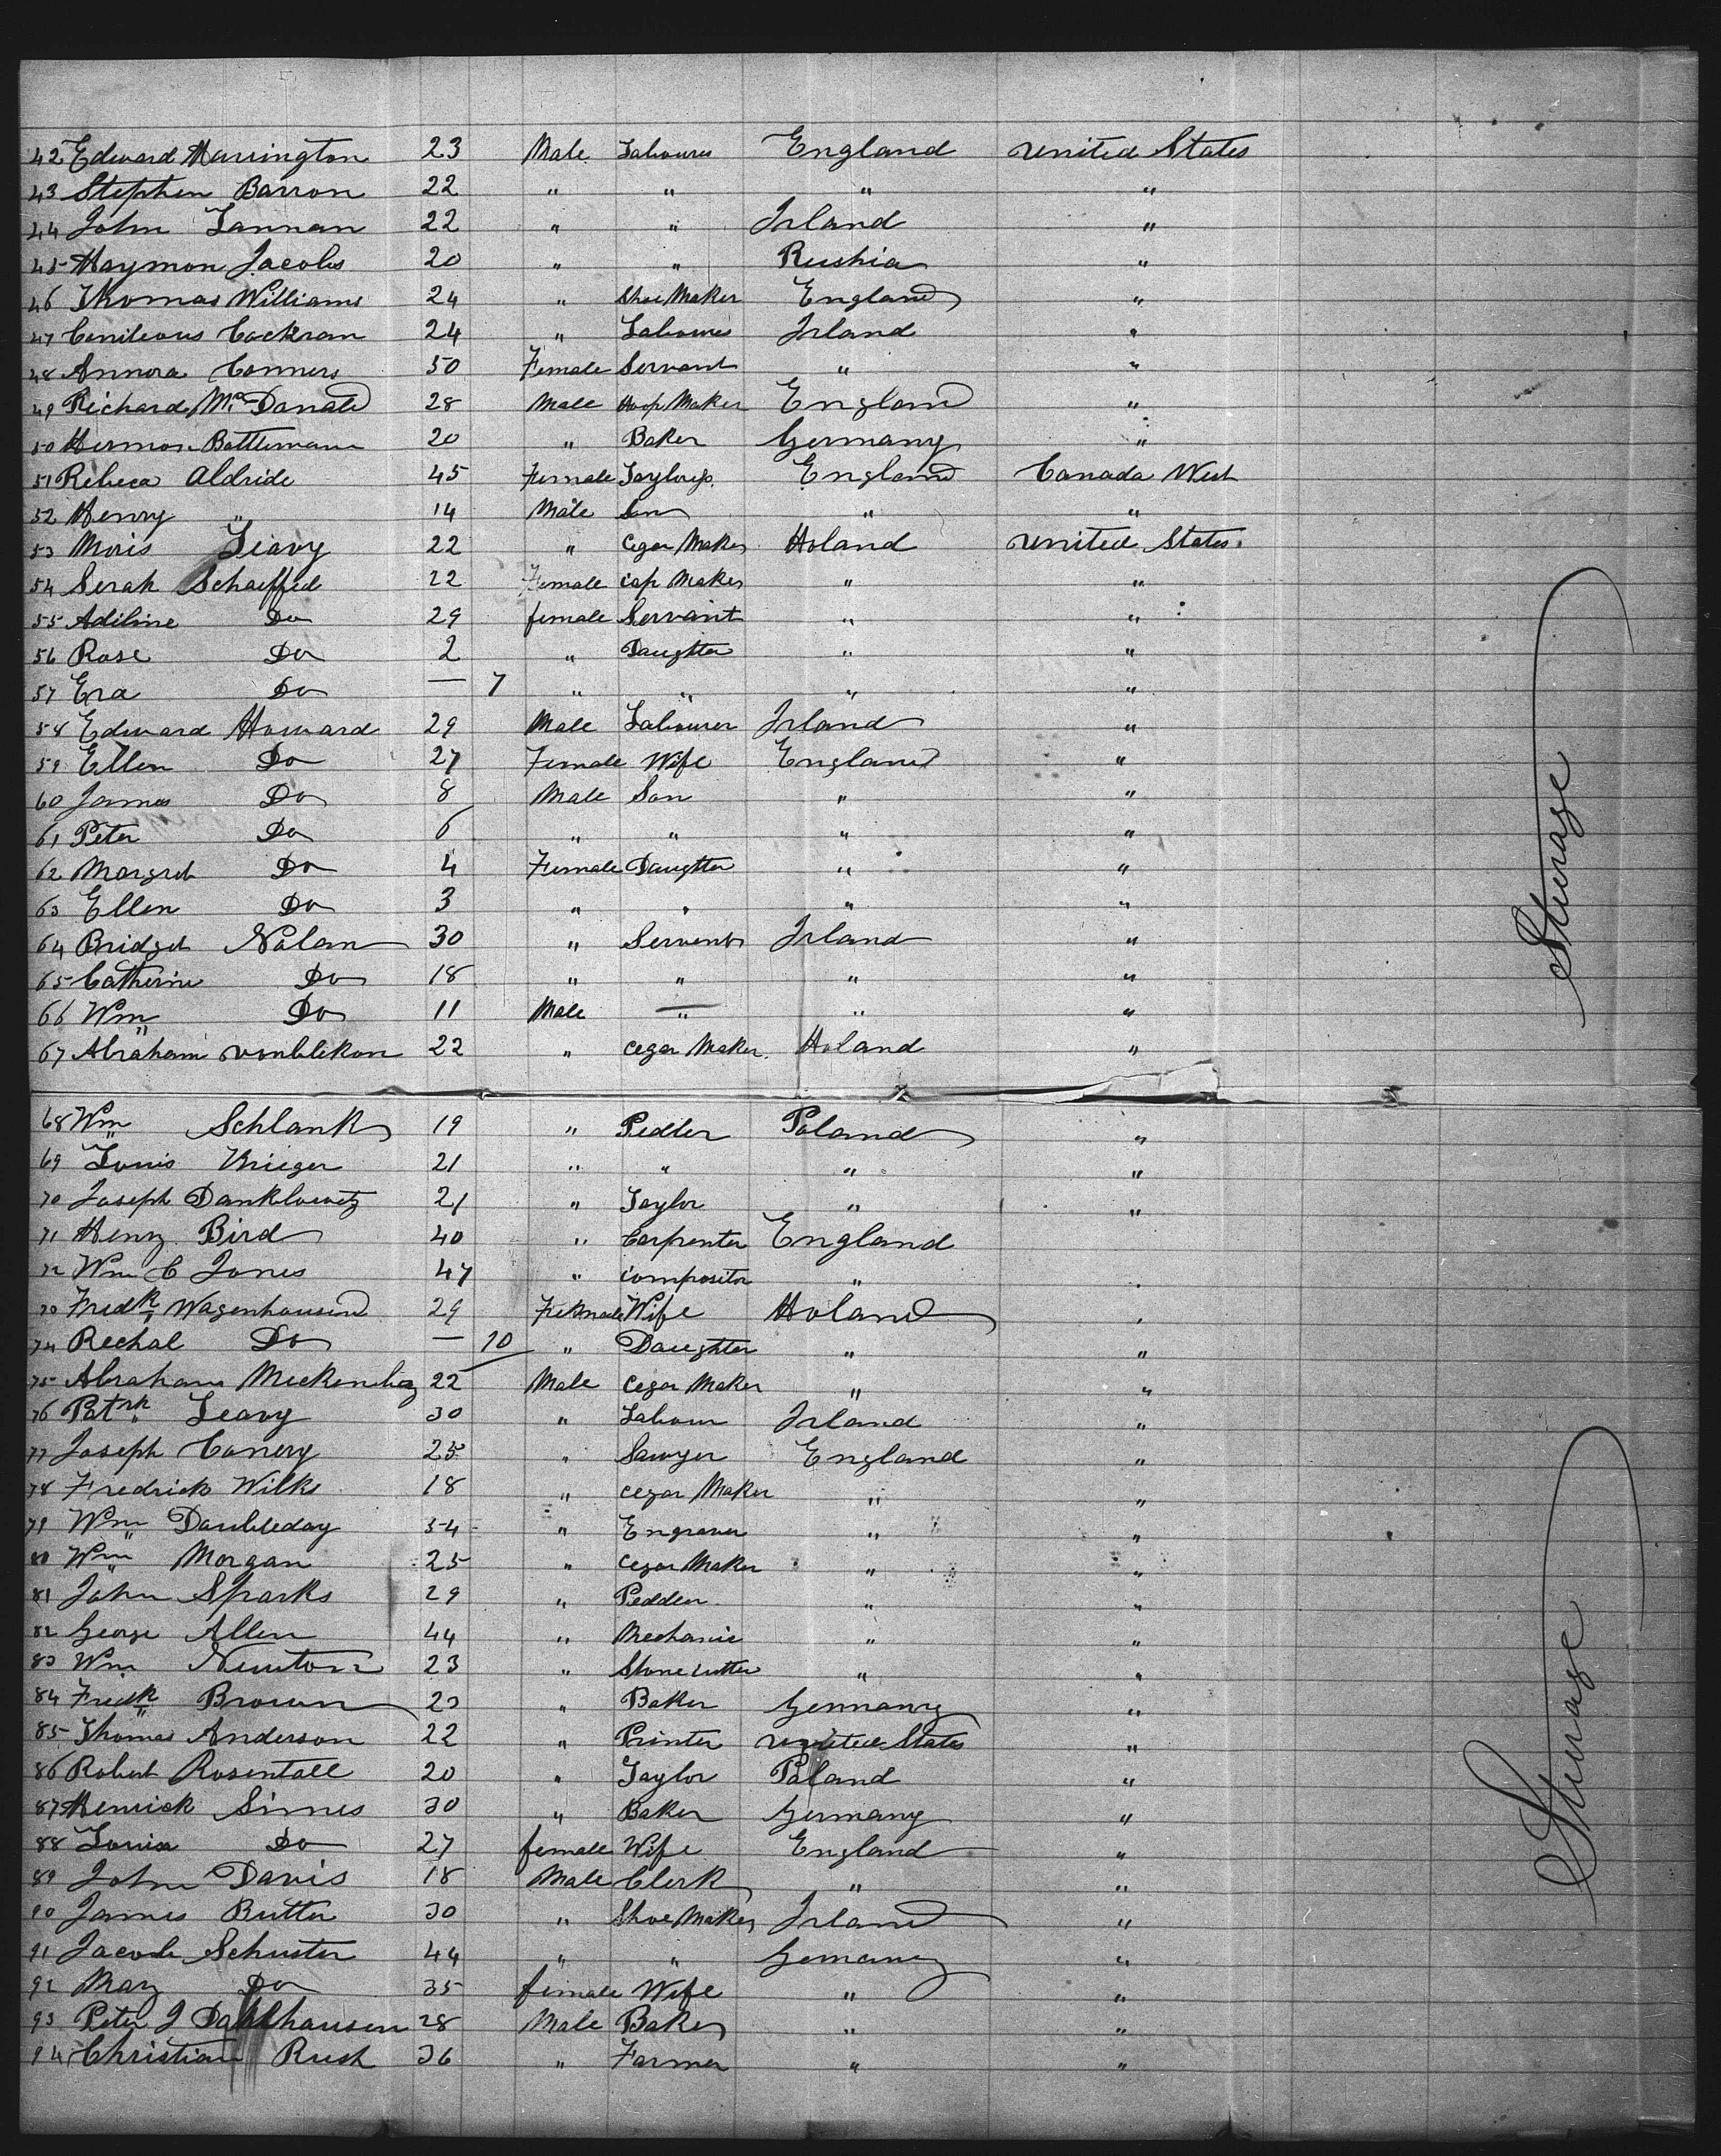 42 Edward Harrington 23 Male Labourer England United States
43 Stephen Barron 22 " " " "
44 John Lannan 22 " " Irland "
45 Haymon Jacobs 20 " " Rushia "
46 Thomas Williams 24 " Shoe Maker England "
47 Cockran 24 " Labourer Irland "
48 Annora Conners 50 Female Servant " "
49 Richard McDonald 28 Male Hoop Maker England "
50 Hermon Battlemann 20 " Baker Germany "
51 Rebeca Aldride 45 Female England Canada West
52 Henry " 14 Male Son " "
53 Moris Leavy 22 " Cegar Maker Holand United States
54 Serah Schaeffed 22 Female Cap Maker " "
55 Adiline Do 29 female Servant " "
56 Rose Do 2 " Daughter " "
57 Era Do — 7 " " " "
58 Edward Howard 29 Male Labourer Irland "
59 Ellen Do 27 Female Wife England "
60 James Do 8 Male Son " "
61 Peter Do 6 " " " "
62 Margret Do 4 Female Daughter " "
63 Ellen Do 3 " " " "
64 Bridget Nolan 30 " Servent Irland "
65 Catherine Do 18 " " " "
66 Wm Do 11 Male — " "
67 Abraham vonblekon 22 " Cegar Maker Holand "
68 Wm Schlank 19 " Pedler Poland "
69 Louis Krieger 21 " " " "
70 Joseph Danklowitz 21 " Taylor " "
71 Henry Bird 40 " Carpenter England
72 Wm C Jones 47 " Compositor " "
73 Fredk Wagenhousend 29 Female Wife Holand "
74 Rechal Do — 10 " Daughter " "
75 Abraham 22 Male Cegar Maker " "
76 Patrk Leavy 30 " Labour Irland "
77 Joseph Conery 25 " Sawyer England "
78 Fredrick Wilks 18 " Cegar Maker " "
79 Wm Doubleday 54 " Engraver " "
80 Wm Morgan 25 " Cegar Maker " "
81 John Sparks 29 " Peddler " "
82 George Allen 44 " Mechanic " "
83 Wm Newton 23 " Stone cutter " "
84 Fredk Brown 23 " Baker Germany "
85 Thomas Anderson 22 " Printer United States "
86 Robert Rosentall 20 " Taylor Poland "
87 Henrick Simes 30 " Baker Germany "
88 Louia Do 27 female Wife England "
89 John Davis 18 Male Clerk " "
90 James Butter 30 " Shoe Maker Irland "
91 Jacob Schuster 44 " " Gemany "
92 Mary Do 35 female Wife " "
93 Peter J Dahlhausen 28 Male Baker " "
94 Christian Rush 36 " Farmer " "
Sturage
Sturage